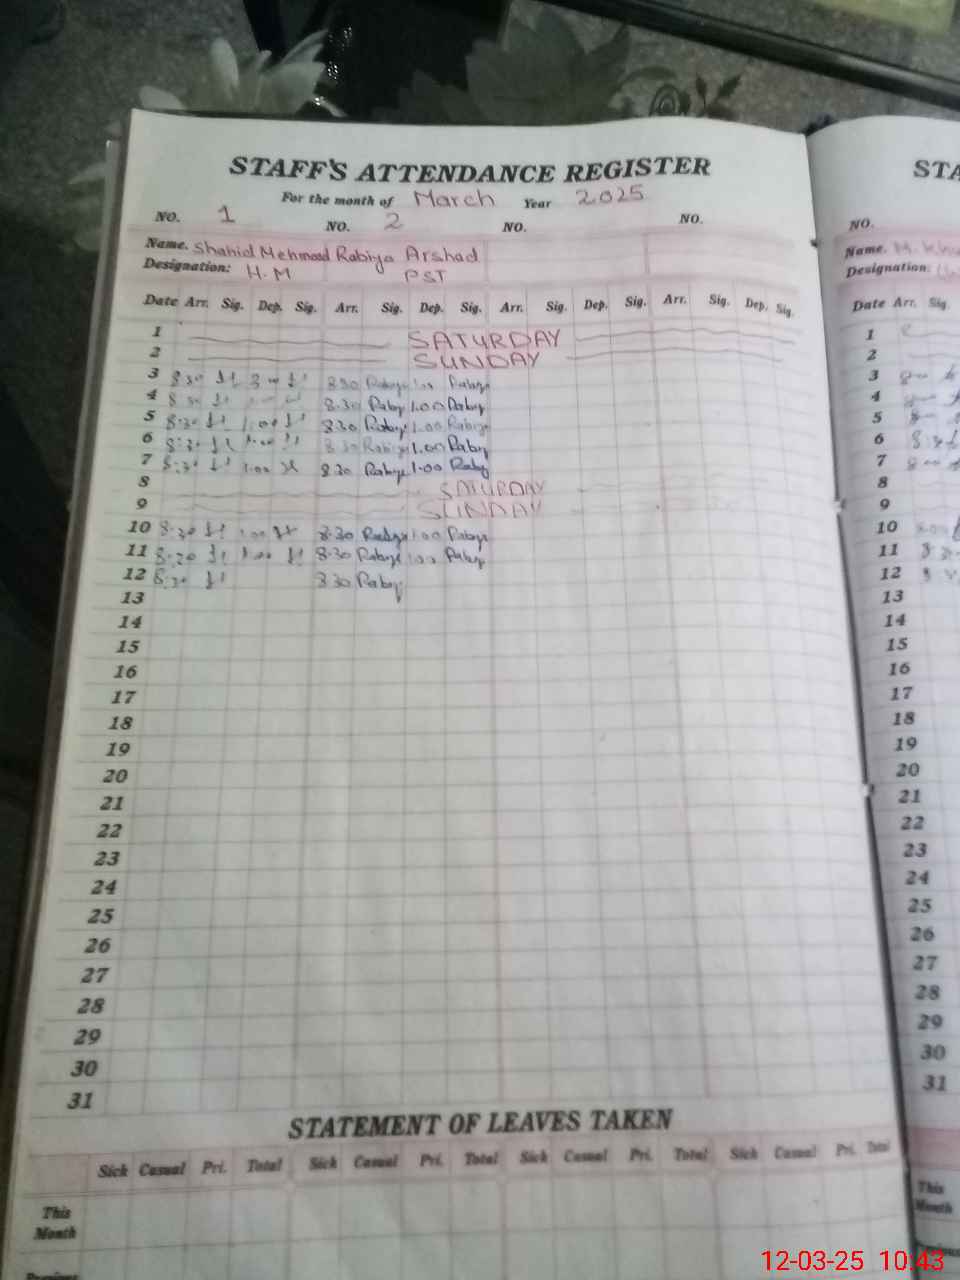 STAFF'S ATTENDANCE REGISTER
For the month of March Year 2025
NO. 1 NO. 2 NO. NO.
Name. Shahid Mehmood Rabiya Arshad
Designation: H.M PST
Date Arr. Sig. Dep. Sig. Arr. Sig. Dep. Sig. Arr. Sig. Dep. Sig. Arr. Sig. Dep. Sig.
1 SATURDAY
2 SUNDAY
3 8.30 8.30 Rabiya 1.00 Rabiya
4 8.30 8.30 Rabiya 1.00 Rabiya
5 8.30 1.00 8.30 Rabiya 1.00 Rabiya
6 8.30 1.00 8.30 Rabiya 1.00 Rabiya
7 8.30 1.00 8.30 Rabiya 1.00 Rabiya
8 SATURDAY
9 SUNDAY
10 8.30 1.00 8.30 Rabiya 1.00 Rabiya
11 8.30 1.00 8.30 Rabiya 1.00 Rabiya
12 8.30 8.30 Rabiya
13
14
15
16
17
18
19
20
21
22
23
24
25
26
27
28
29
30
31
STATEMENT OF LEAVES TAKEN
Sick Casual Pri. Total Sick Casual Pri. Total Sick Casual Pri. Total Sick Casual Pri. Total
This
Month
STA
NO.
Name. M.
Designation:
Date Arr. Sig.
1
2
3
4
5
6
7
8
9
10
11
12
13
14
15
16
17
18
19
20
21
22
23
24
25
26
27
28
29
30
31
This
Month
12-03-25 10:43